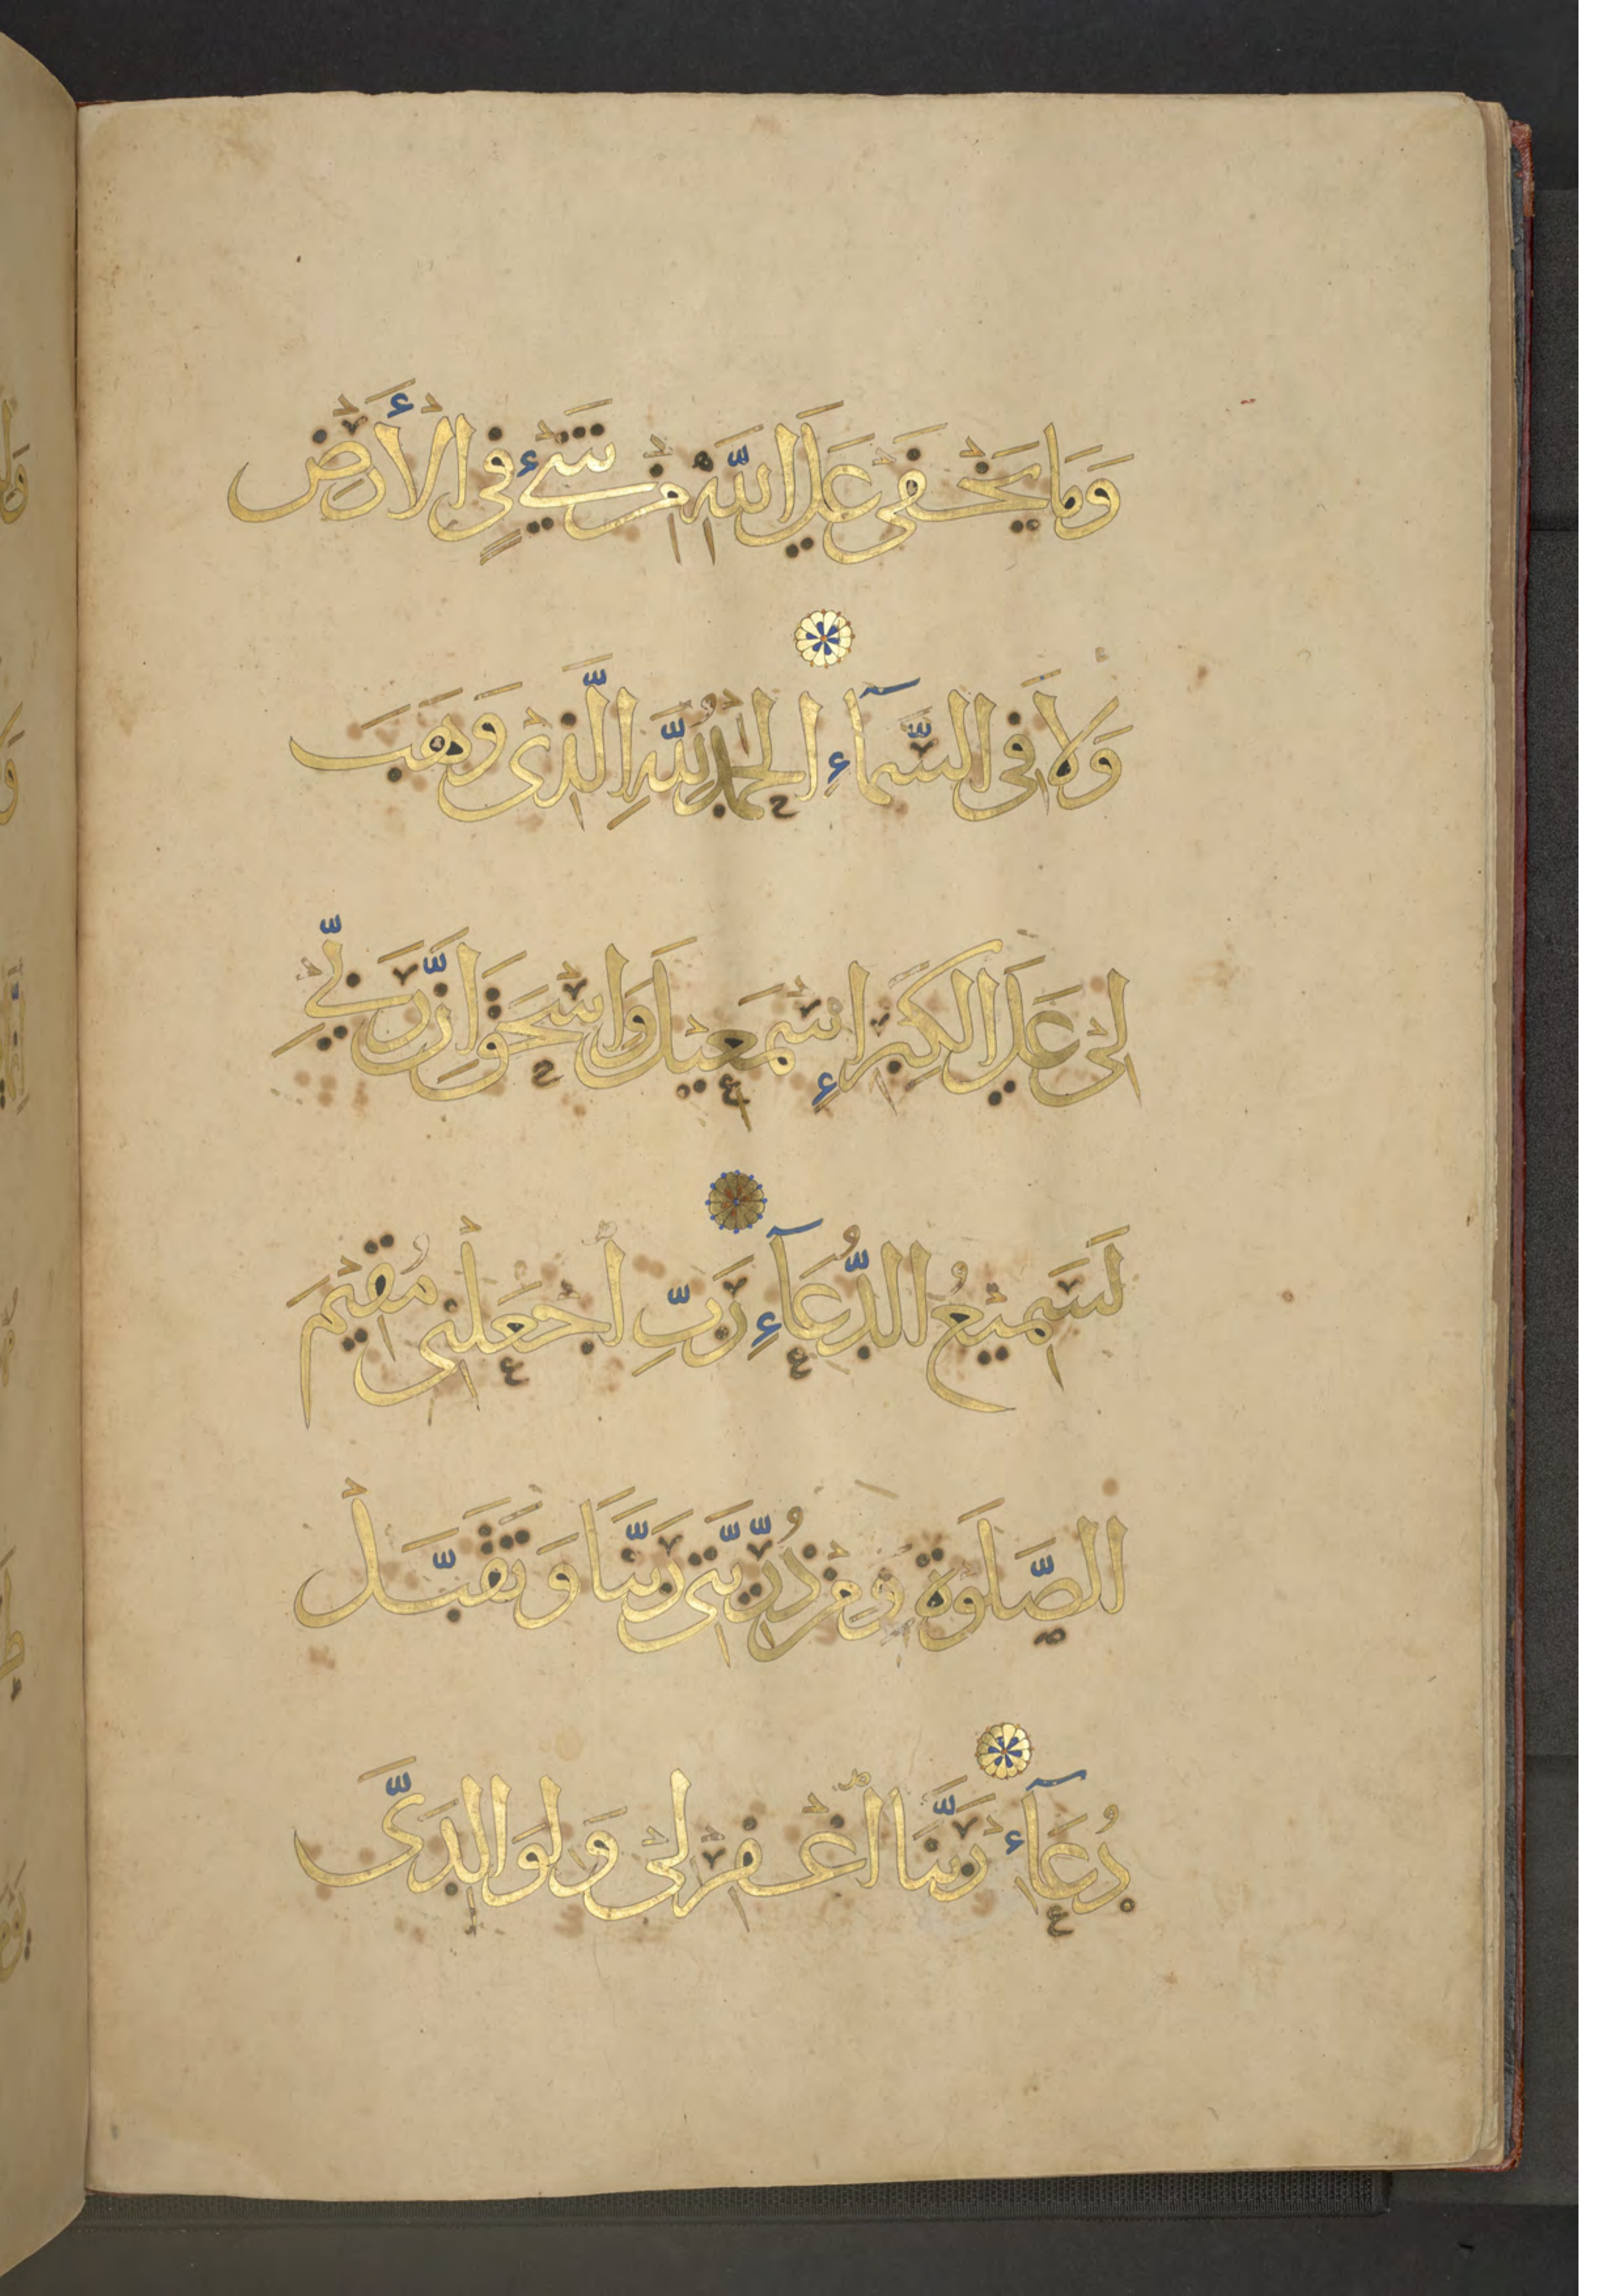 وَمَا يَخْفَى عَلَى اللَّهِ مِنْ شَيْءٍ فِي الْأَرْضِ
وَلَا فِي السَّمَآءِ الْحَمْدُ لِلَّهِ الَّذِي وَهَبَ
لِي عَلَى الْكِبَرِ إِسْمَعِيلَ وَإِسْحَقَ إِنَّ رَبِّي
لَسَمِيعُ الدُّعَآءِ رَبِّ اجْعَلْنِي مُقِيمَ
الصَّلَوةِ وَمِنْ ذُرِّيَّتِي رَبَّنَا وَتَقَبَّلْ
دُعَآءِ رَبَّنَا اغْفِرْ لِي وَلِوَالِدَيَّ